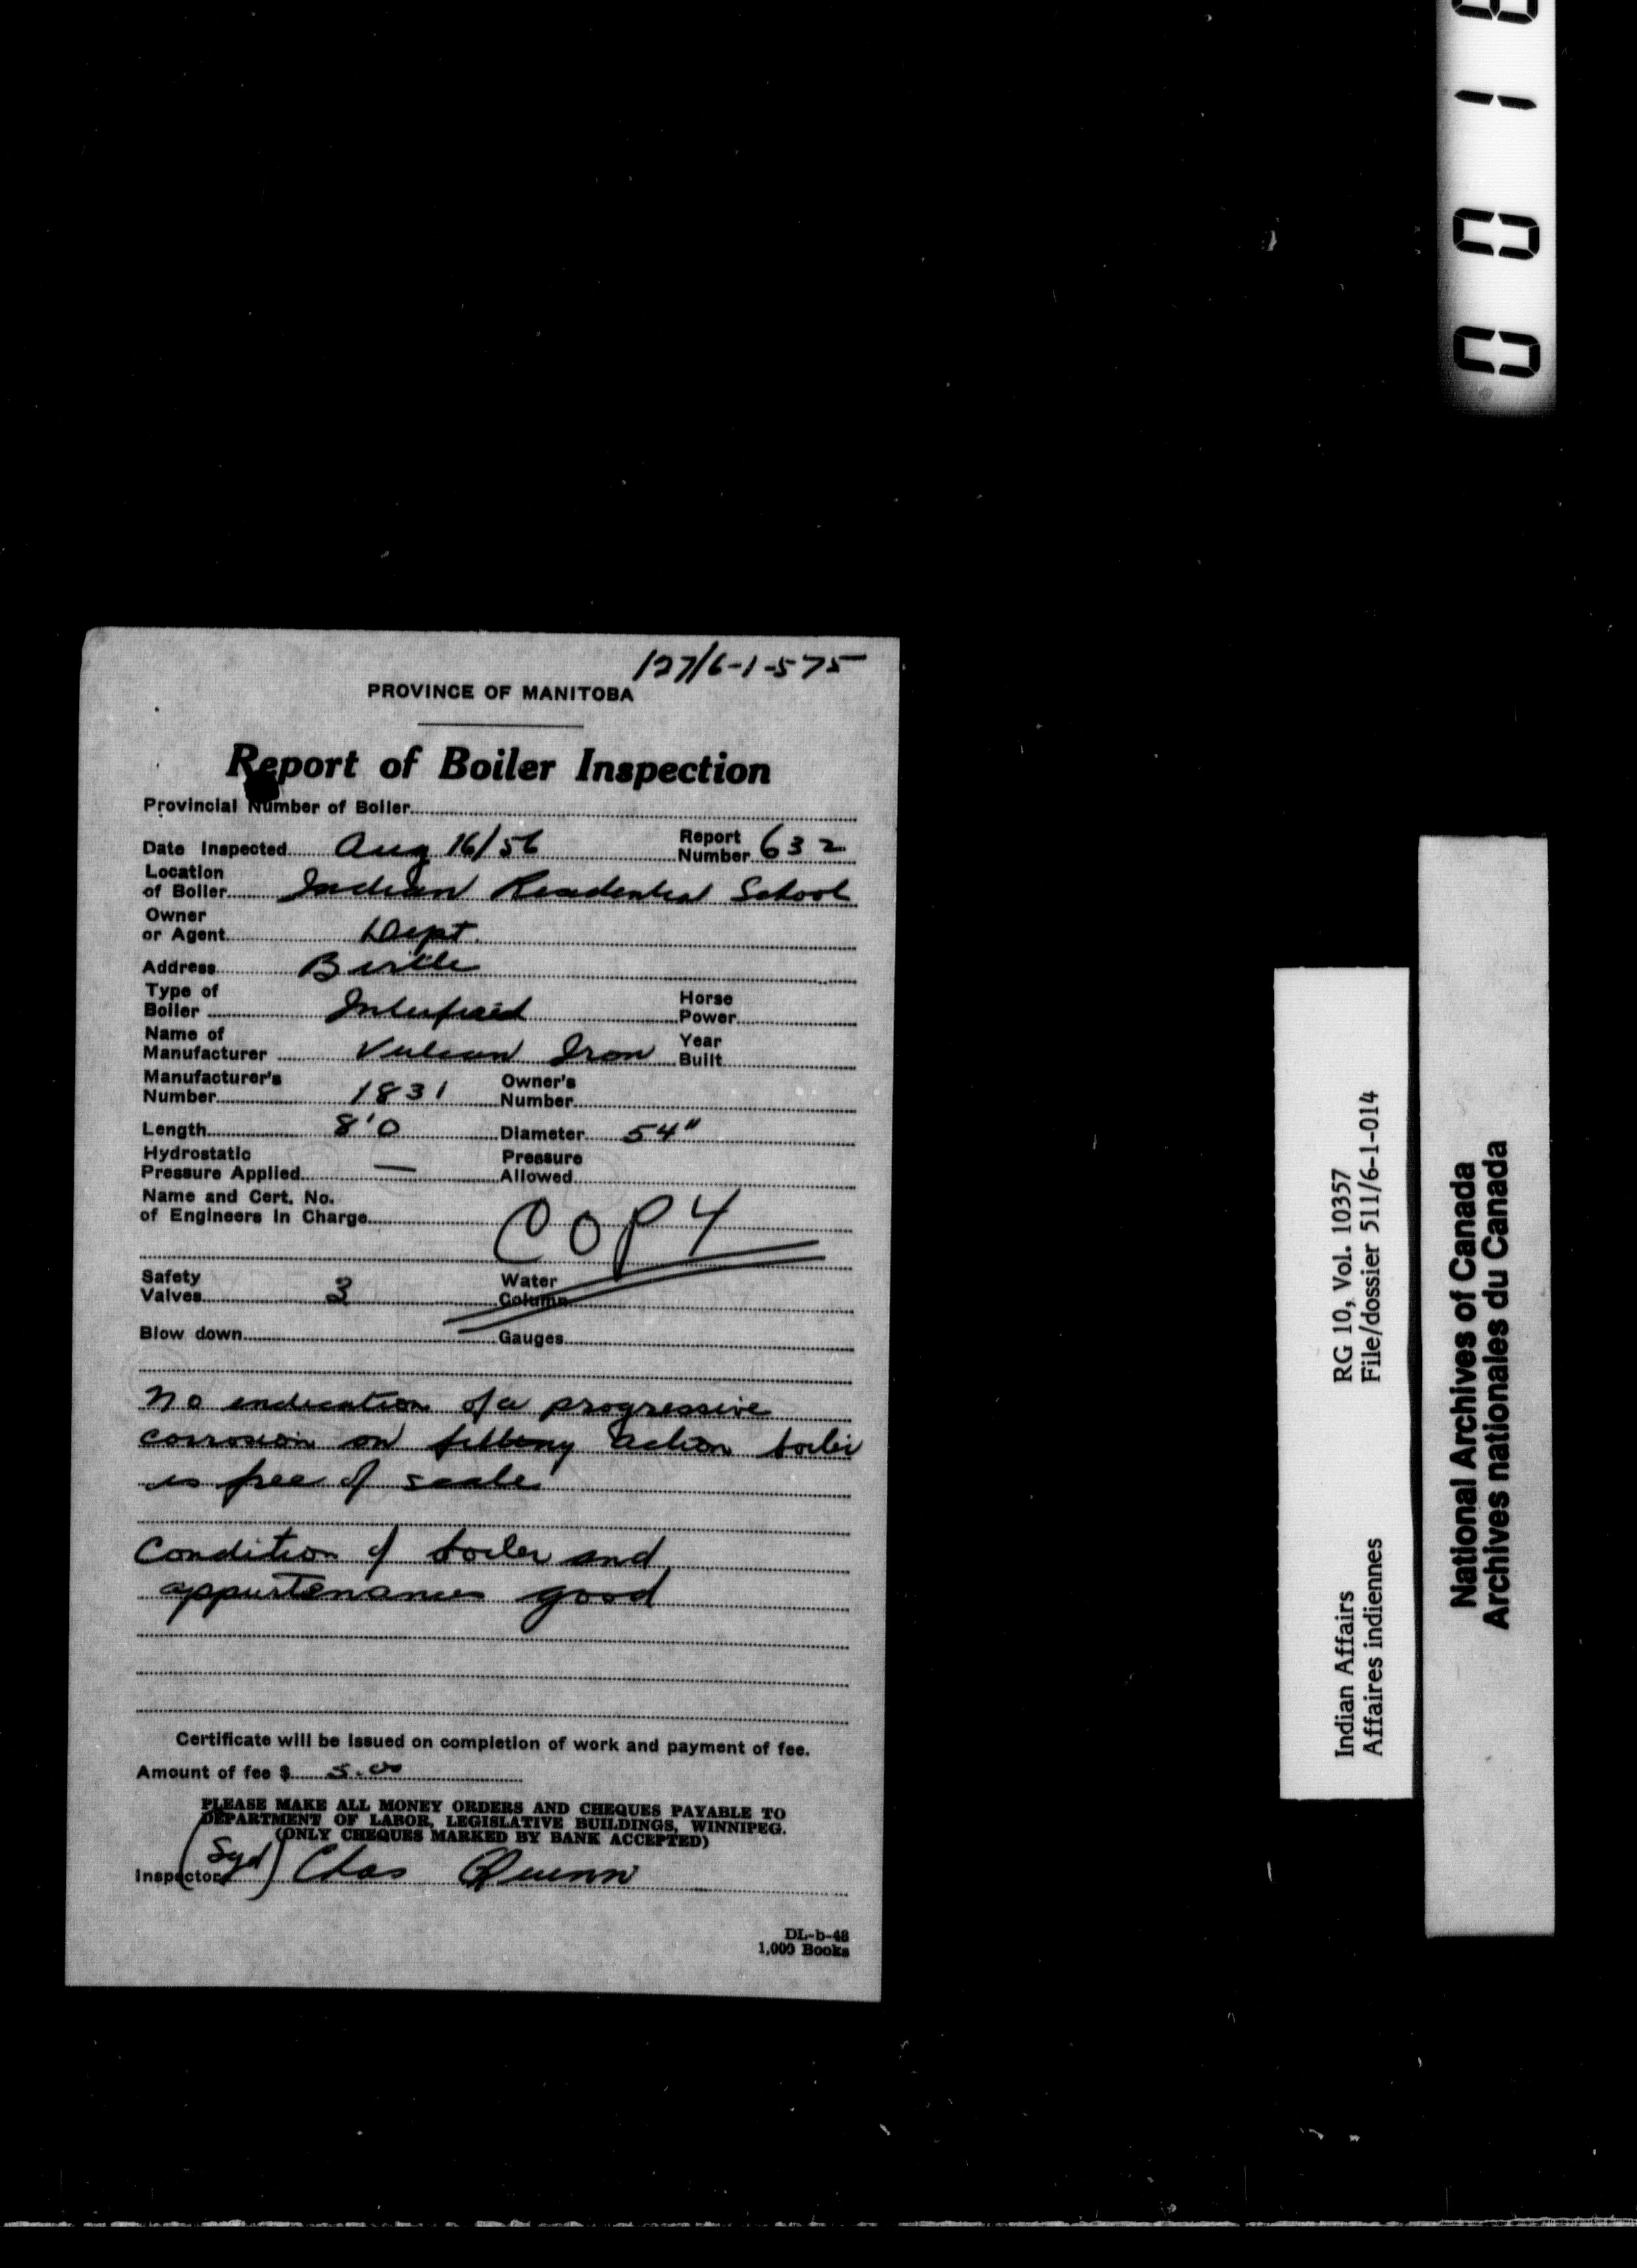 127/6-1-575
PROVINCE OF MANITOBA
Report of Boiler Inspection
Provincial Number of Boiler
Date Inspected Aug 16/56 Report Number 632
Location of Boiler Indian Residential School
Owner or Agent Dept.
Address Birtle
Type of Boiler Horse Power
Name of Manufacturer Vulcan Iron Year Built
Manufacturer's Number 1831 Owner's Number
Length 8'0 Diameter 54"
Hydrostatic Pressure Applied — Pressure Allowed
Name and Cert. No. of Engineers in Charge
COPY
Safety Valves 3 Water Column
Blow down Gauges
No indication of a progressive
corrosion or action boiler
is free of scale
Condition of boiler and
appurtenances good
Certificate will be issued on completion of work and payment of fee.
Amount of fee $ 5.00
PLEASE MAKE ALL MONEY ORDERS AND CHEQUES PAYABLE TO
DEPARTMENT OF LABOR, LEGISLATIVE BUILDINGS, WINNIPEG.
(ONLY CHEQUES MARKED BY BANK ACCEPTED)
Inspector (Sgd) Chas Quinn
DL-b-48
1,000 Books
Indian Affairs RG 10, Vol. 10357
Affaires indiennes File/dossier 511/6-1-014
National Archives of Canada
Archives nationales du Canada